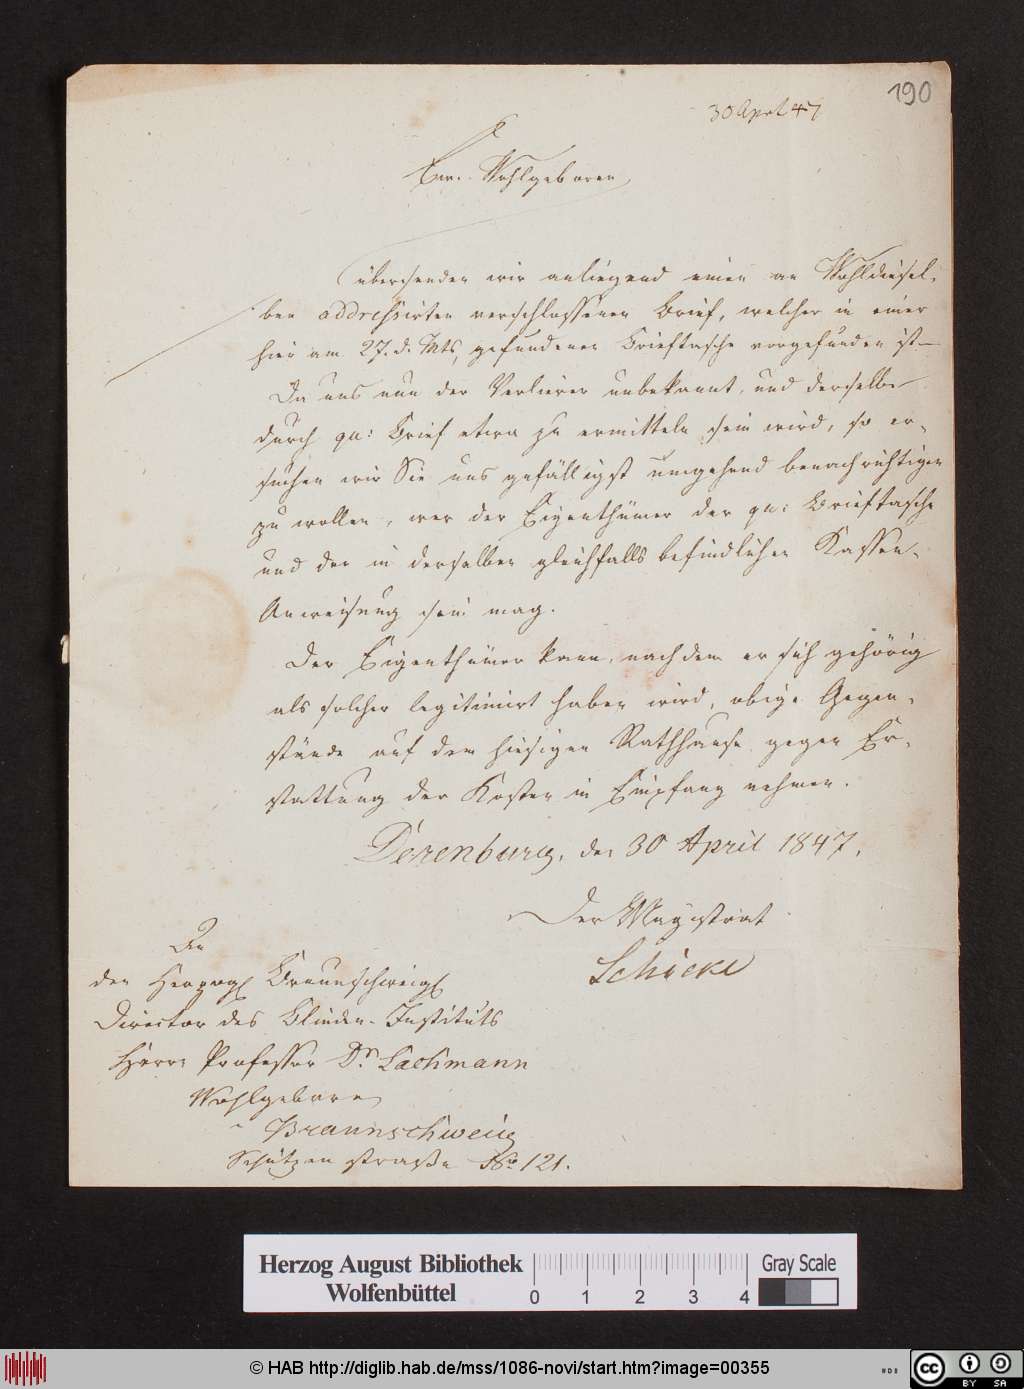 190
30 April 47
Ew. Wohlgeboren
übersenden wir anliegend einen an Wohldiesel-
ben addressirten verschlossenen Brief, welcher in einer
hier am 27. d. Mts, gefundenen Brieftasche vorgefunden ist
Da uns nun der Verlierer unbekannt, und derselbe
durch qu: Brief etwa zu ermitteln sein wird, so er-
suchen wir Sie uns gefälligst umgehend benachrichtigen
zu wollen, wer der Eigenthümer der qu: Brieftasche
und der in derselben gleichfalls befindlichen Kassen-
Anweisung sein mag.
Der Eigenthümer kann, nachdem er sich gehörig
als solcher legitimirt haben wird, obige Gegen-
stände auf dem hiesigen Rathhause gegen Er-
stattung der Kosten in Empfang nehmen.
Derenburg, den 30 April 1847.
Der Magistrat
Schicke
An
den Herzogl Braunschweigl
Director des Blinden-Instituts
Herrn Professor Dr. Lachmann
Wohlgeboren
Braunschweig
Schützenstraße No 121.
Herzog August Bibliothek
Wolfenbüttel
0 1 2 3 4
Gray Scale
© HAB http://diglib.hab.de/mss/1086-novi/start.htm?image=00355
cc BY SA